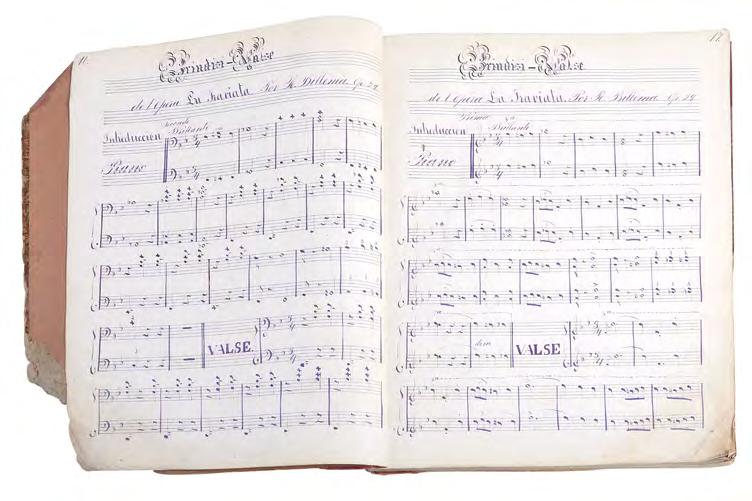 11.
Brindisi-Valse
de l'Opera La Traviata. Por R. Billema. Op. 29
Secondo
Brillante
Introduccion
Piano
VALSE
12.
Brindisi-Valse
de l'Opera La Traviata. Por R. Billema. Op. 29
Primo
Brillante
Introduccion
Piano
dim
VALSE